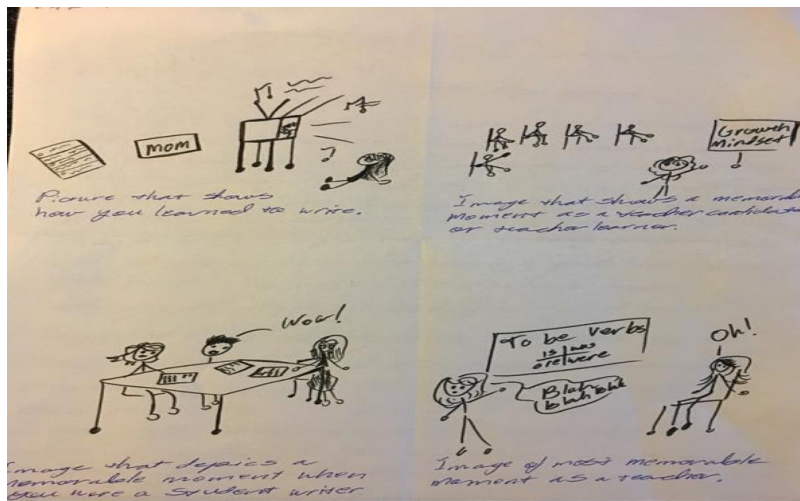 mom
Picture that shows
how you learned to write.
Growth
Mindset
Image that shows a memorable
moment as a teacher candidate
or teacher learner.
Wow!
Image that depics a
memorable moment when
you were a student writer
To be verbs
is was
are were
Blah blah
blah blah
Oh!
Image of most memorable
moment as a teacher.